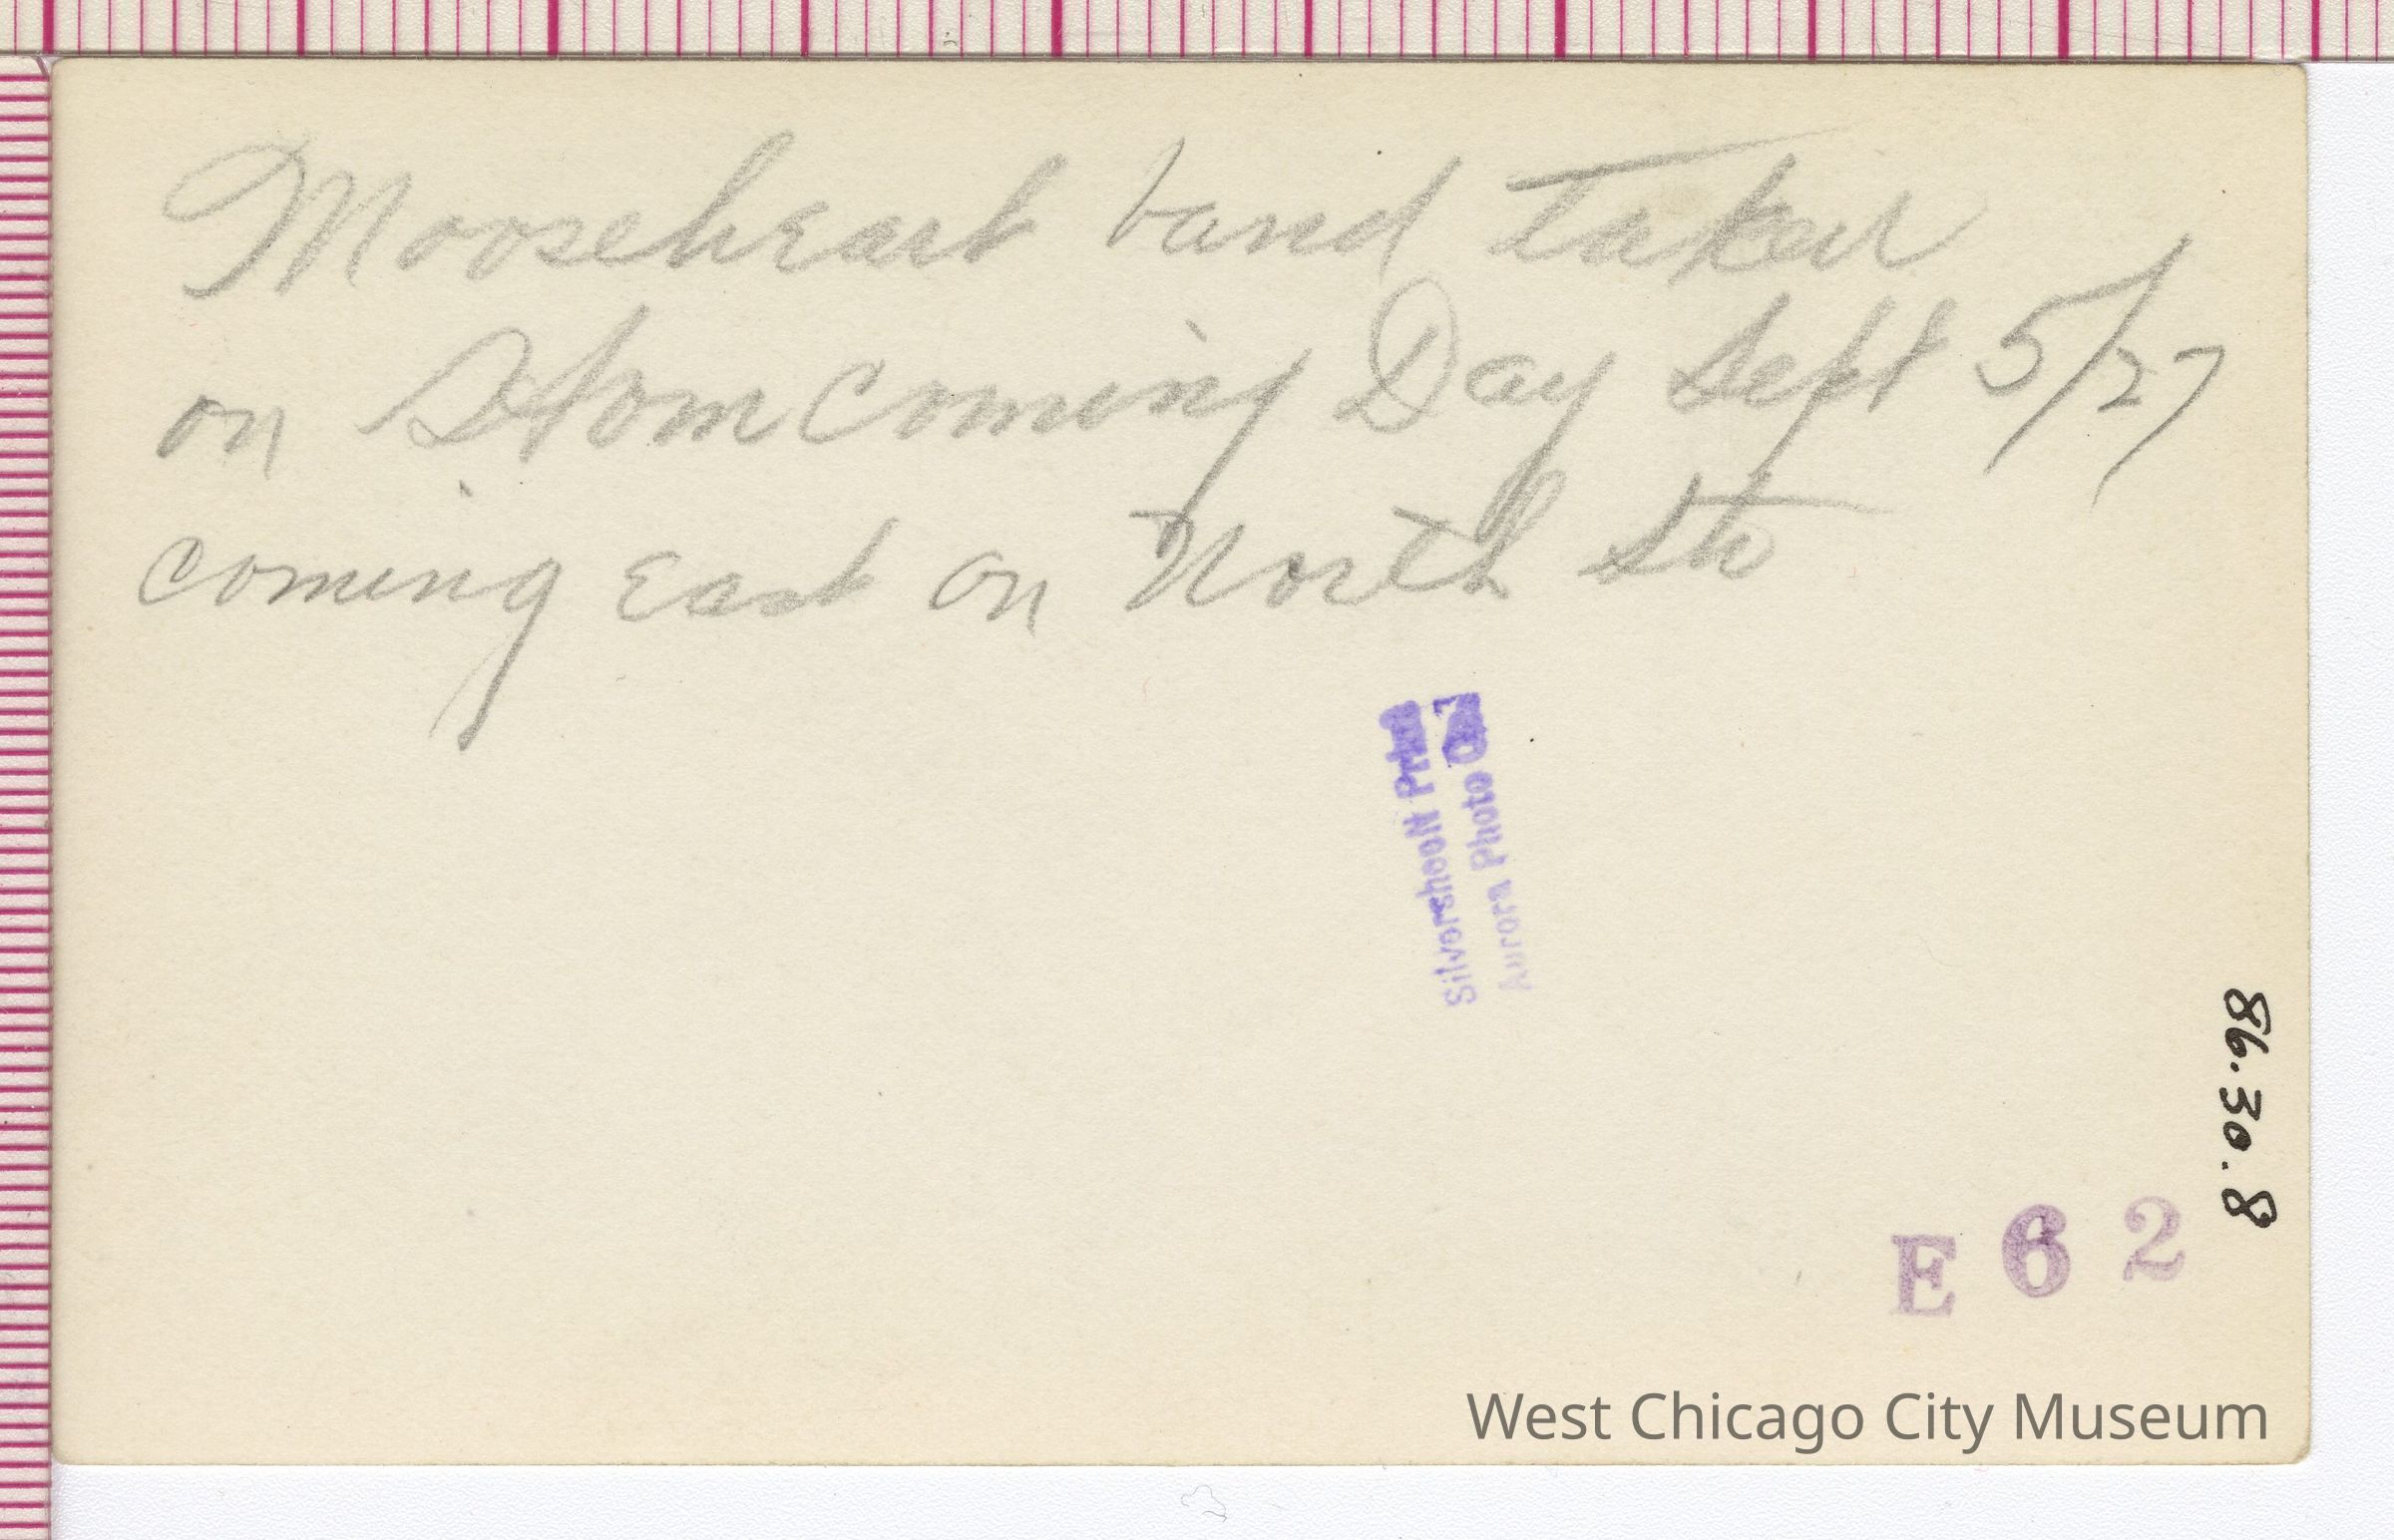 Mooseheart band taken
on Homcoming Day Sept 5/27
coming East on North Str
Silversheen Print
Aurora Photo
86.30.8
E 6 2
West Chicago City Museum